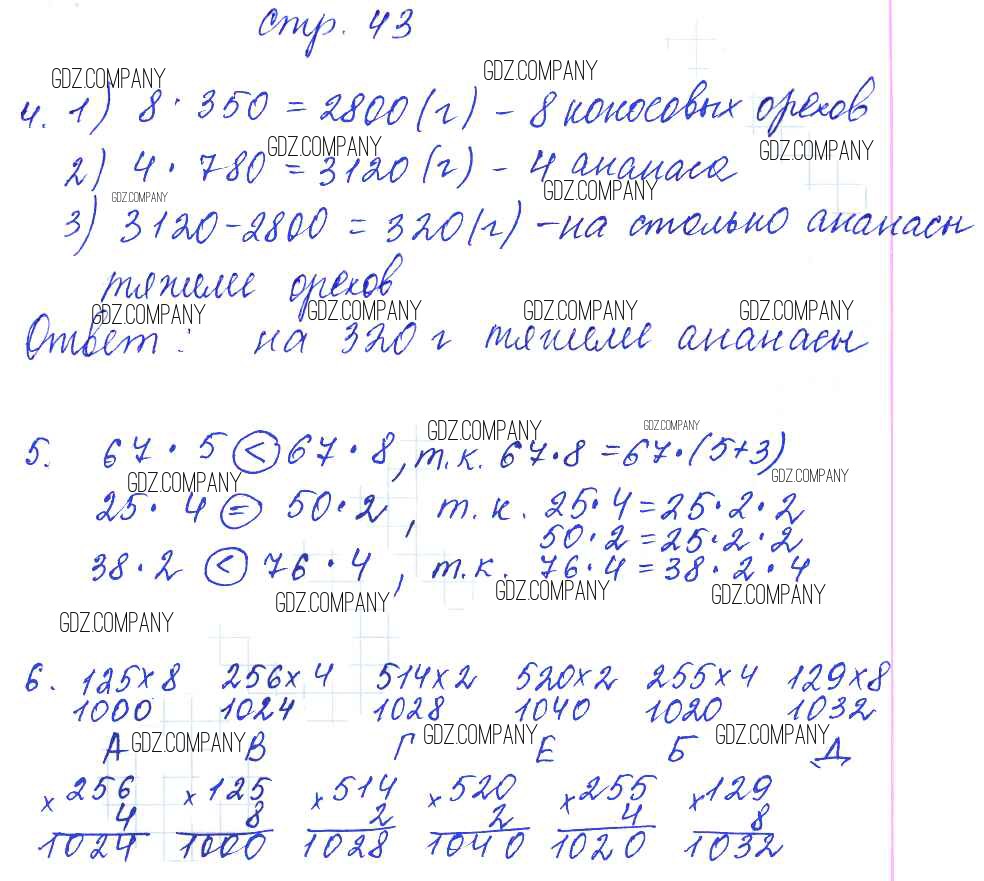 стр. 43
GDZ.COMPANY GDZ.COMPANY
4. 1) 8 · 350 = 2800 (г) – 8 кокосовых орехов
GDZ.COMPANY GDZ.COMPANY
2) 4 · 780 = 3120 (г) – 4 ананаса
GDZ.COMPANY GDZ.COMPANY
3) 3120 – 2800 = 320 (г) – на столько ананасы
тяжелее орехов
GDZ.COMPANY GDZ.COMPANY GDZ.COMPANY GDZ.COMPANY
Ответ: на 320 г тяжелее ананасы
GDZ.COMPANY GDZ.COMPANY
5. 67 · 5 < 67 · 8, т.к. 67 · 8 = 67 · (5+3)
GDZ.COMPANY GDZ.COMPANY
25 · 4 = 50 · 2, т.к. 25 · 4 = 25 · 2 · 2
50 · 2 = 25 · 2 · 2
38 · 2 < 76 · 4, т.к. 76 · 4 = 38 · 2 · 4
GDZ.COMPANY GDZ.COMPANY GDZ.COMPANY
GDZ.COMPANY
6. 125 x 8 256 x 4 514 x 2 520 x 2 255 x 4 129 x 8
1000 1024 1028 1040 1020 1032
А GDZ.COMPANY В Г GDZ.COMPANY Е Б GDZ.COMPANY Д
x 256 x 125 x 514 x 520 x 255 x 129
4 8 2 2 4 8
1024 1000 1028 1040 1020 1032